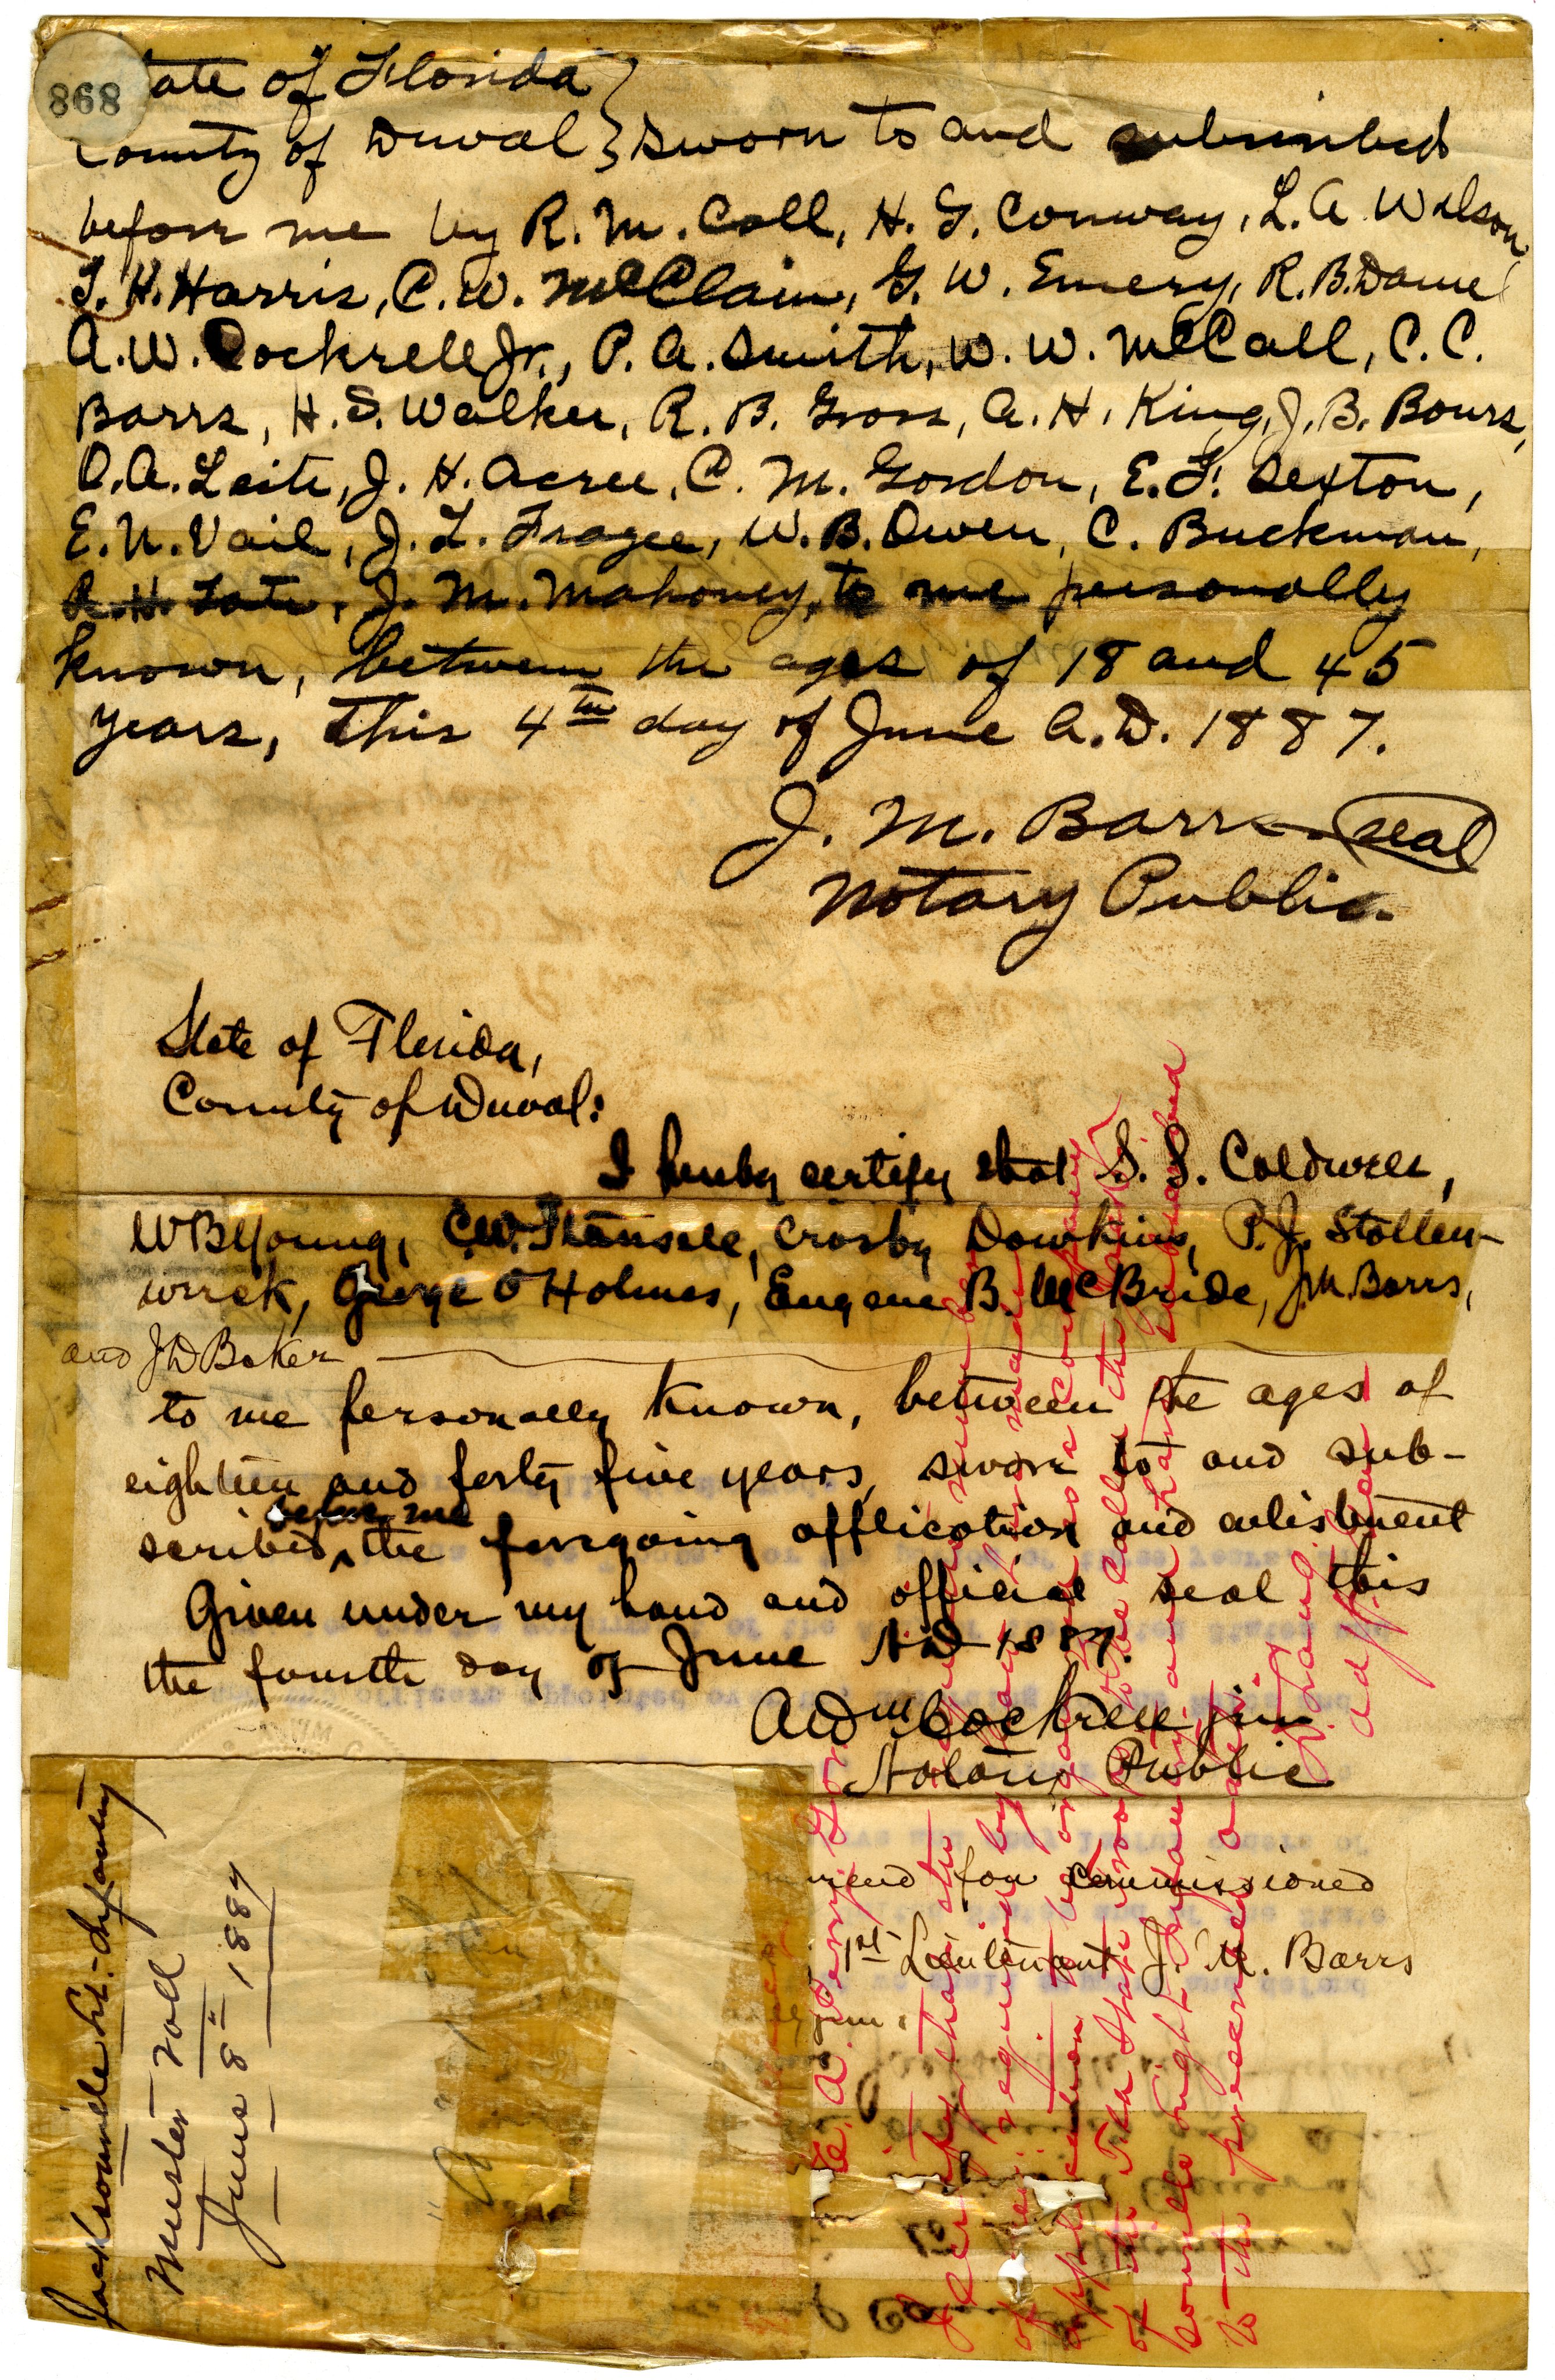 868
State of Florida }
County of Duval } Sworn to and subscribed
before me by R. M. Call, H. G. Conway, L. A. Wilson,
T. H. Harris, C. W. McClain, G. W. Emery, R. B. Daniel
A. W. Cockrell Jr., P. A. Smith, W. W. McCall, C. C.
Barrs, H. S. Walker, R. B. Gross, A. H. King, J. B. Bours,
A. Leite, J. H. Acree, C. M. Gordon, E. F. Sexton,
E. N. Vail, J. L. Frazee, W. B. Owen, C. Buckman,
R. H. Tate, J. M. Mahoney, to me personally
known, between the ages of 18 and 45
years, This 4th day of June A.D. 1887.
J. M. Barrs seal
Notary Public.
State of Florida,
County of Duval:
I hereby certify that S. S. Coldwell,
W B Young, C. W. Stansell, Crosby Dawkins, P. J. Stollen-
wreck, George O Holmes, Eugene B. McBride, J. M. Barrs,
and J D Baker
to me personally known, between the ages of
eighteen and forty five years, swore to and sub-
scribed before me the foregoing application and enlistment
Given under my hand and official seal this
the fourth day of June A D 1887.
A Wm Cockrell jun
Notary Public
mend for commissioned
1st Lieutenant J. M. Barrs
jun.
Jacksonville Lt. Infantry
Muster Roll
June 8" 1887
E. A. Perry Gov.
I certify that the
required by
application to be organized as a company
of the Fla State troops to be called the
Jacksonville Light Infantry, and have subscribed
to the prescribed oath.
D. Lang